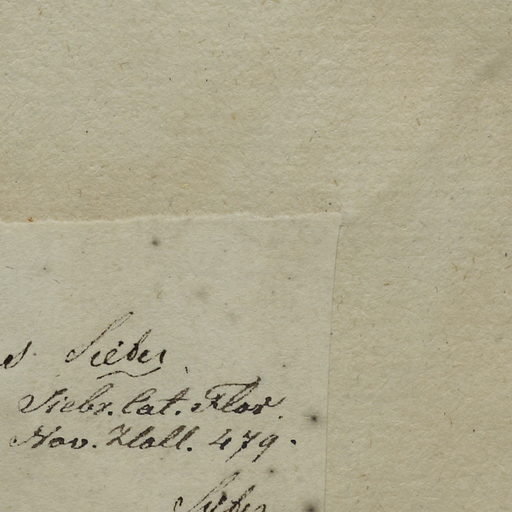 s Sieber
Siebr. Cat. Flor.
Nov. Holl. 479.
Sieber